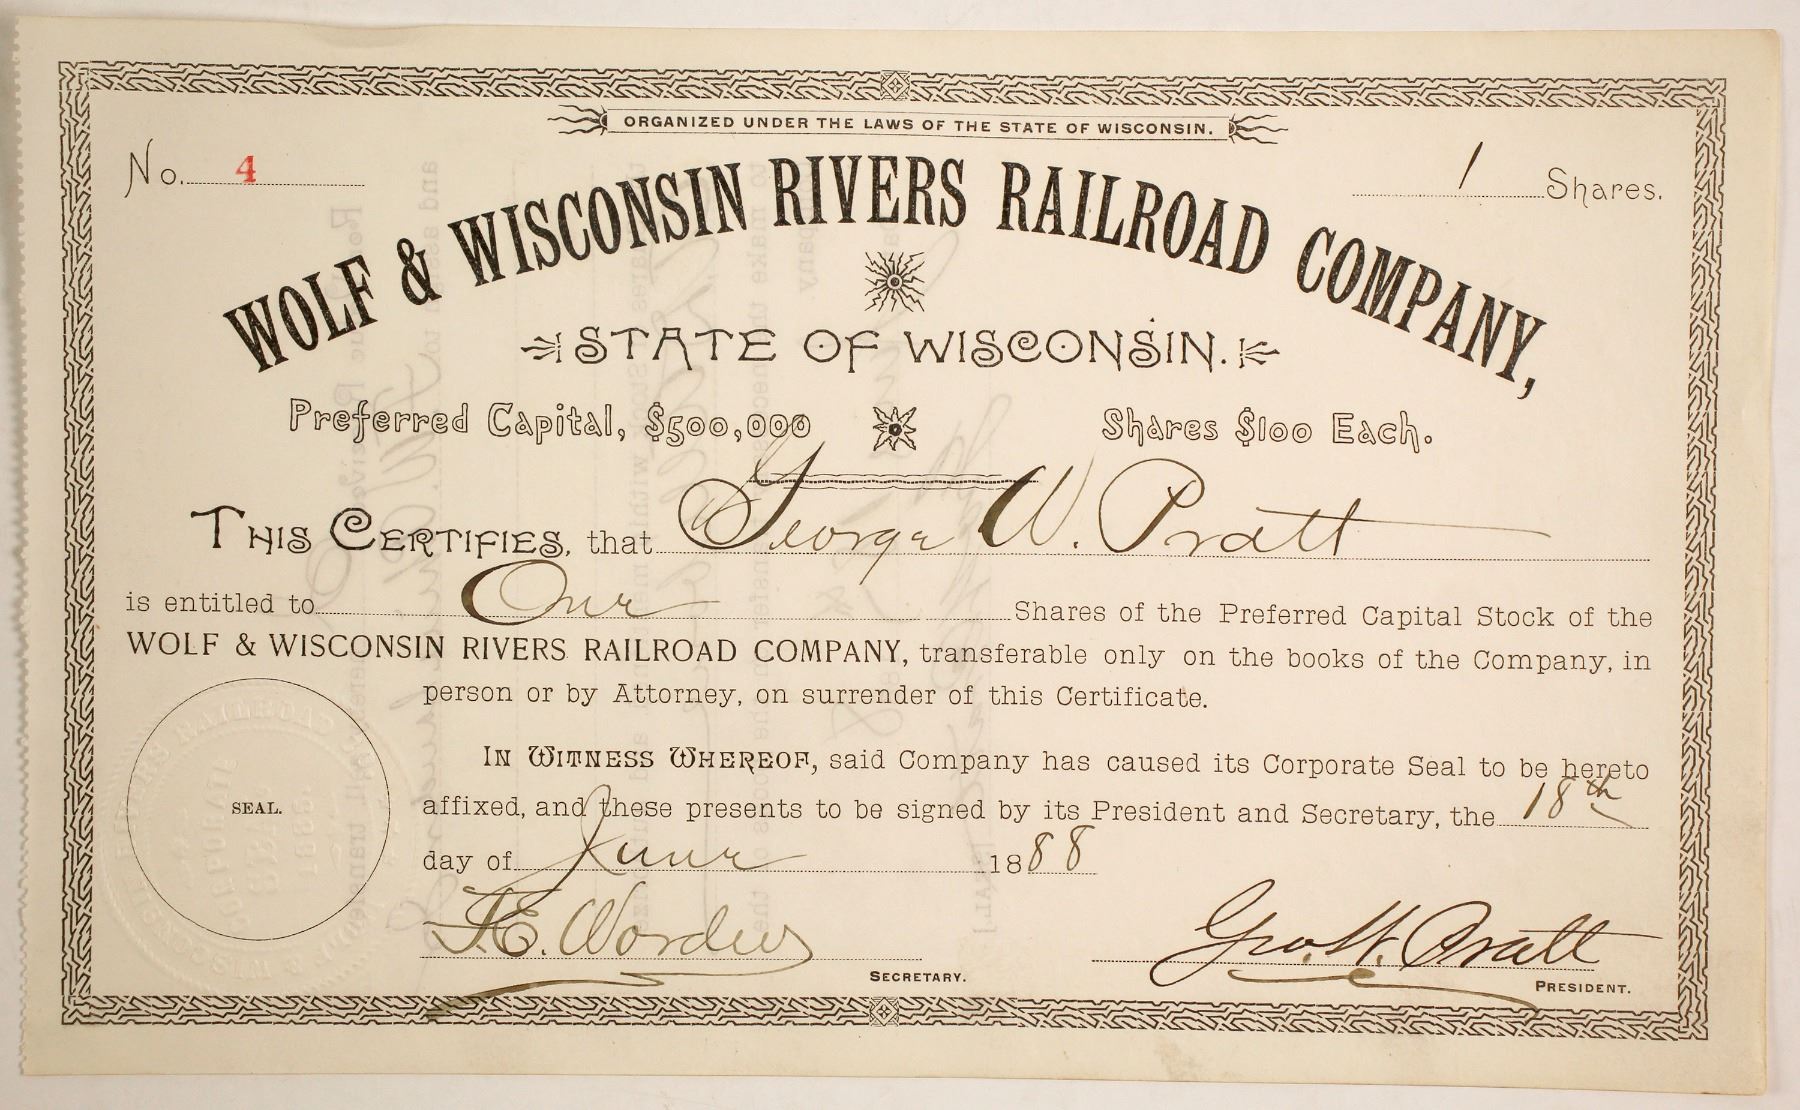 ORGANIZED UNDER THE LAWS OF THE STATE OF WISCONSIN.
No. 4
1 Shares.
WOLF & WISCONSIN RIVERS RAILROAD COMPANY,
STATE OF WISCONSIN.
Preferred Capital, $500,000
Shares $100 Each.
THIS CERTIFIES, that George W. Pratt
is entitled to One Shares of the Preferred Capital Stock of the
WOLF & WISCONSIN RIVERS RAILROAD COMPANY, transferable only on the books of the Company, in
person or by Attorney, on surrender of this Certificate.
IN WITNESS WHEREOF, said Company has caused its Corporate Seal to be hereto
affixed, and these presents to be signed by its President and Secretary, the 18th
day of June 1888
SEAL.
Geo. W. Pratt
SECRETARY.
PRESIDENT.